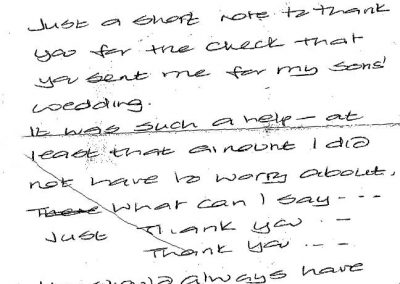 Just a short note to thank
you for the check that
you sent me for my sons'
wedding.
It was such a help - at
least that amount I did
not have to worry about.
There what can I say - - -
Just Thank you - -
Thank you - - -
always have